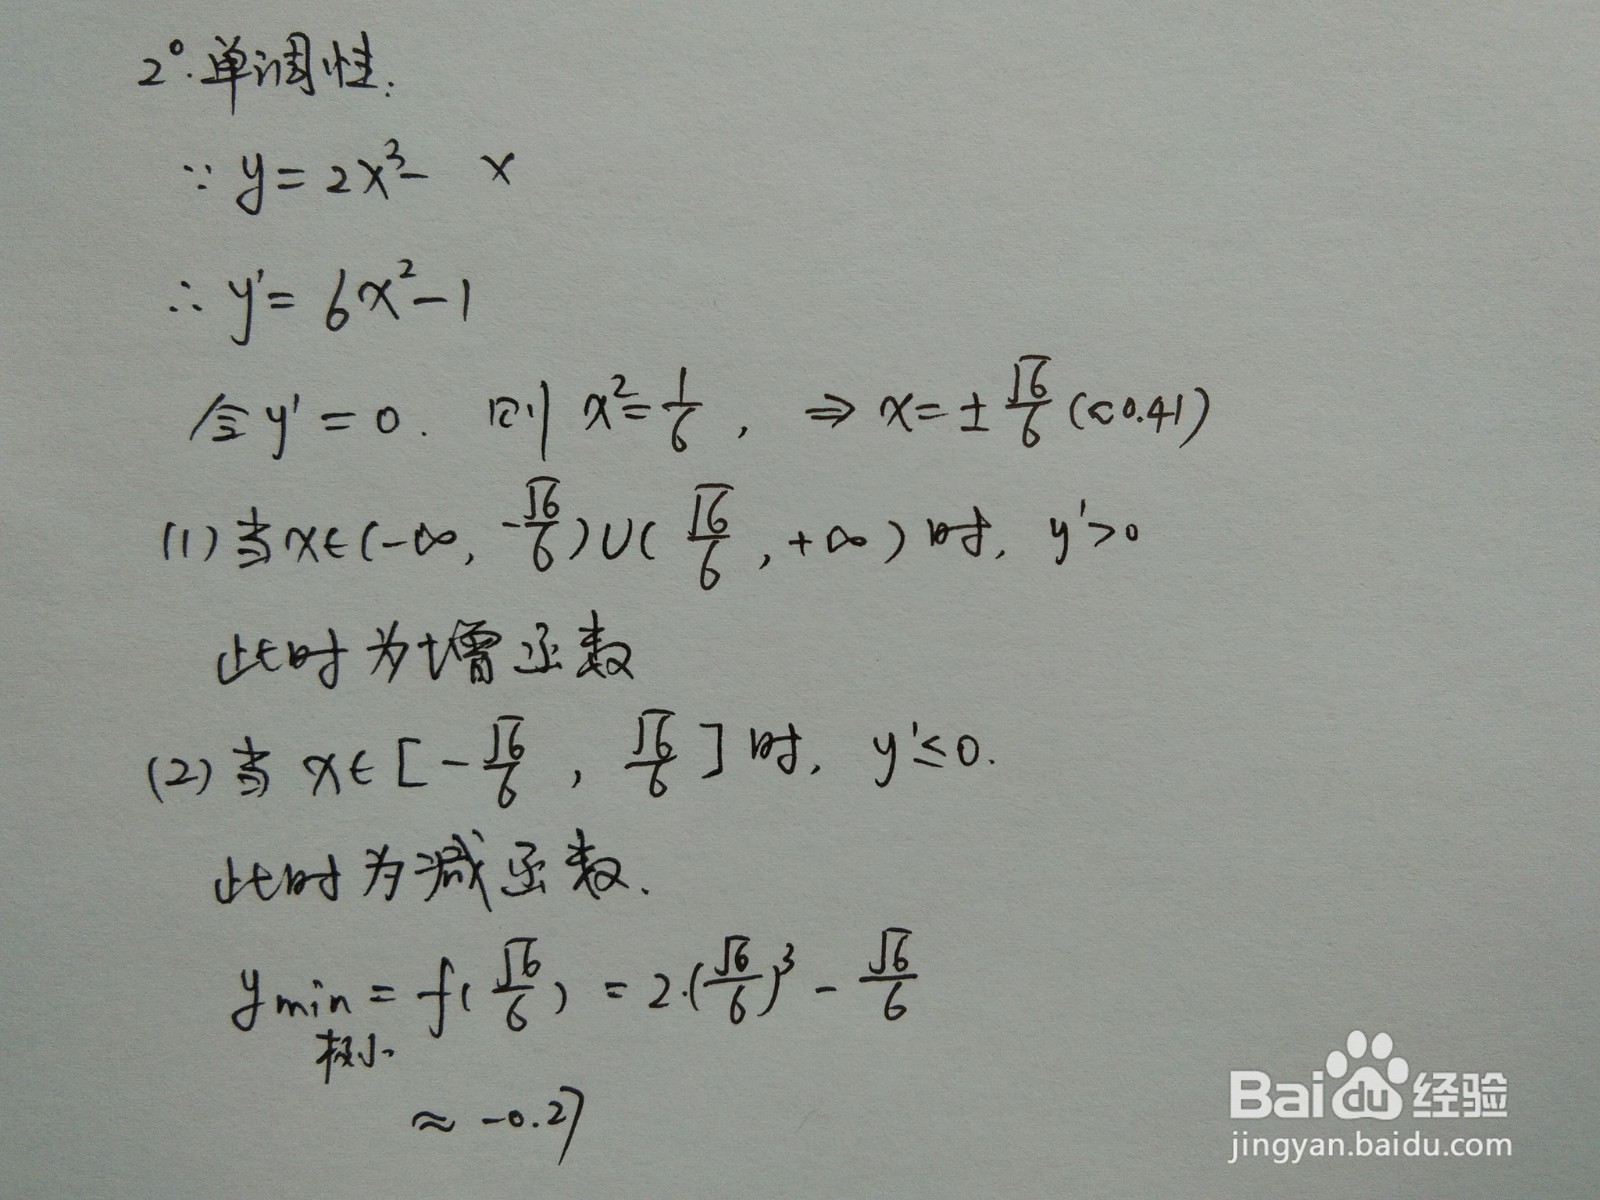 2°. 单调性:
∵ y = 2x³ - x
∴ y' = 6x² - 1
令 y' = 0. 则 x² = 1/6, ⇒ x = ± √6/6 (≈0.41)
(1) 当 x∈(-∞, -√6/6)∪(√6/6, +∞) 时, y' > 0
此时为增函数
(2) 当 x∈[-√6/6, √6/6] 时, y' ≤ 0.
此时为减函数.
y min = f(√6/6) = 2·(√6/6)³ - √6/6
极小
≈ -0.27
Baidu 经验
jingyan.baidu.com